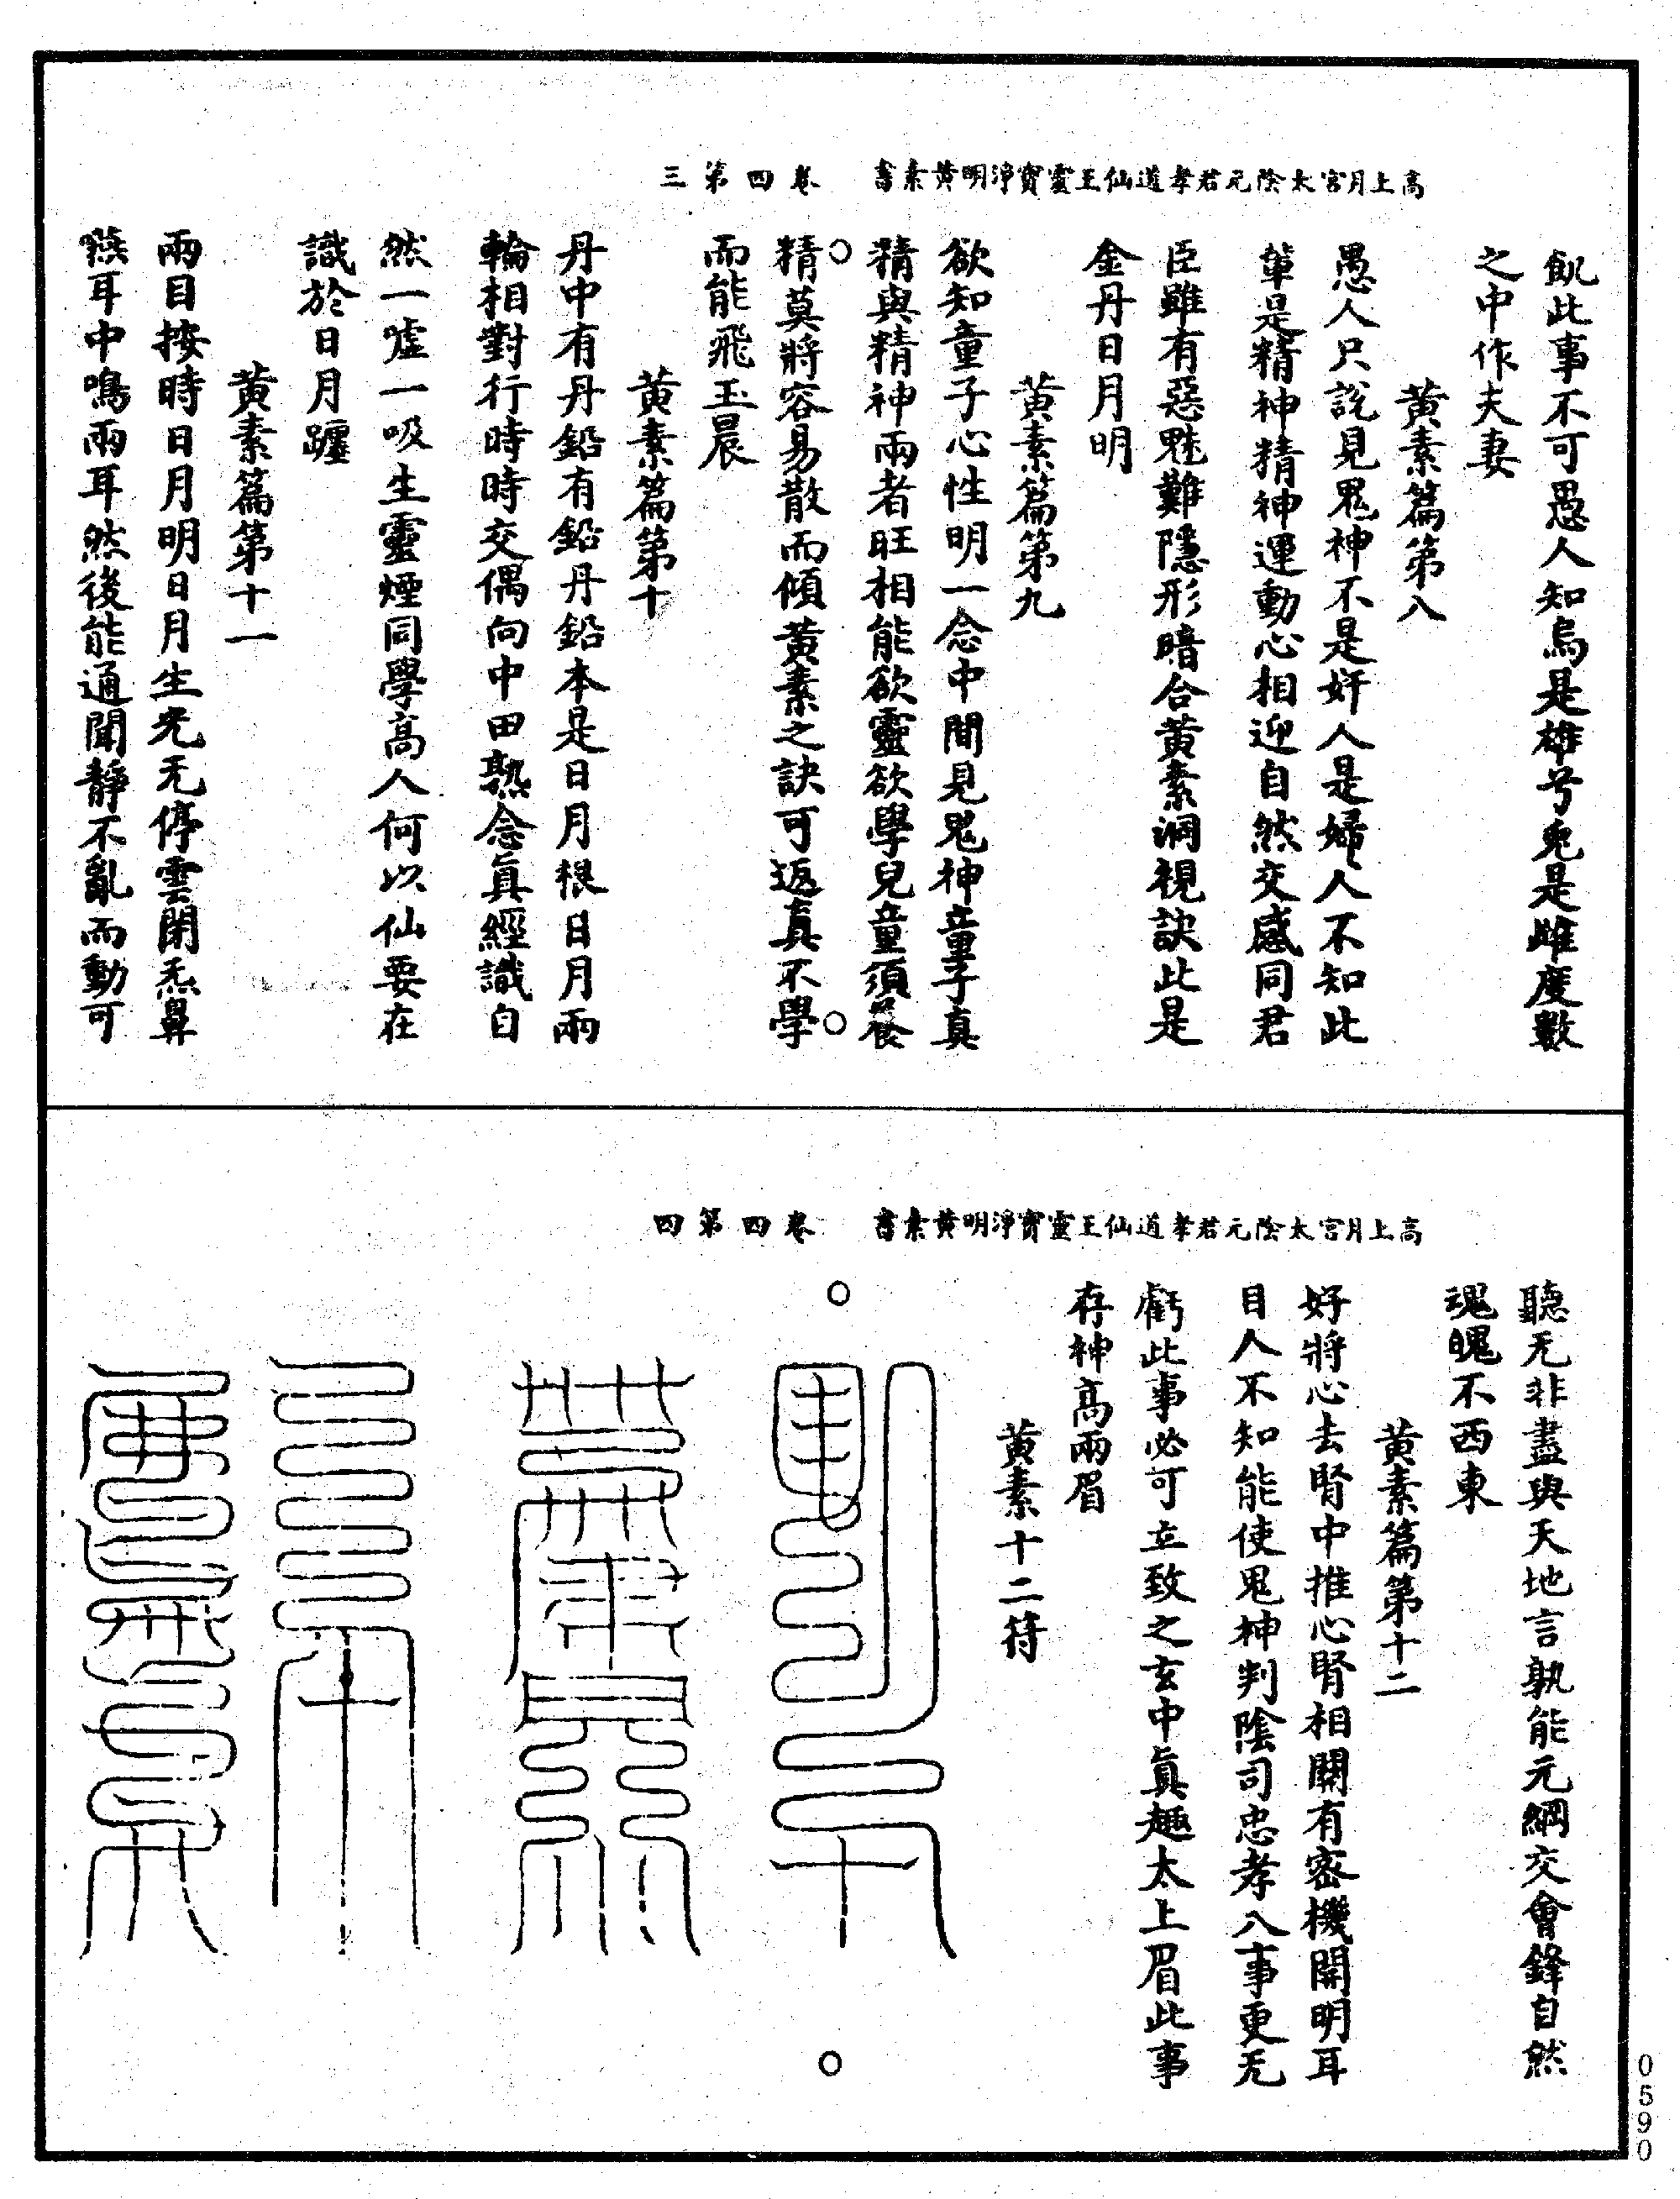 高上月宮太陰元君孝道仙王靈寶淨明黃素書　卷四第三
飢此事不可愚人知烏是雄兮兔是雌度數
之中作夫妻
黃素篇第八
愚人只說見鬼神不是奸人是婦人不知此
輩是精神精神運動心相迎自然交感同君
臣雖有惡魅難隱形暗合黃素洞視訣此是
金丹日月明
黃素篇第九
欲知童子心性明一念中間見鬼神童子真
精與精神兩者旺相能欲靈欲學兒童須養
精莫將容易散而傾黃素之訣可返真不學
而能飛玉晨
黃素篇第十
丹中有丹鉛有鉛丹鉛本是日月根日月兩
輪相對行時時交偶向中田熟念真經識自
然一噓一吸生靈煙同學高人何以仙要在
識於日月躔
黃素篇第十一
兩目按時日月明日月生光无停雲閉炁鼻
嚥耳中鳴兩耳然後能通聞靜不亂而動可
高上月宮太陰元君孝道仙王靈寶淨明黃素書　卷四第四
聽无非盡與天地言孰能元綱交會鋒自然
魂魄不西東
黃素篇第十二
好將心去腎中推心腎相關有密機開明耳
目人不知能使鬼神判陰司忠孝八事更无
虧此事必可立致之玄中真趣太上眉此事
存神高兩眉
黃素十二符
0590